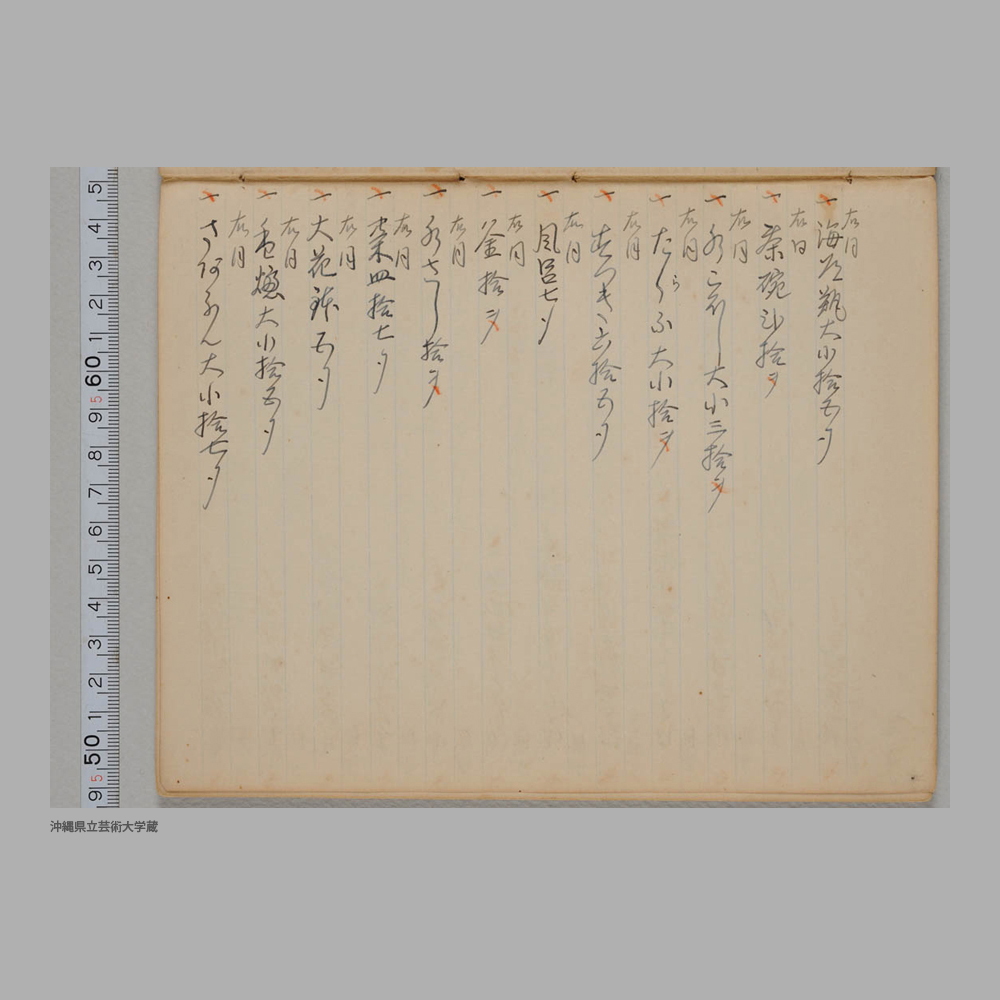 右同
一 海老瓶大小拾五ツ
右同
一 茶碗弐拾ヲ
右同
一 水こぼし大小三拾ヲ
右同
一 たらふ大小拾ヲ
右同
拾五ツ
右同
一 風呂七ツ
右同
一 釜拾ヲ
右同
一 水さし拾ヲ
右同
一 菓皿拾七ツ
右同
一 大花鉢五ツ
右同
一 大小拾五ツ
右同
一 大小拾七ツ
5 4 3 2 1 60 9 8 7 6 5 4 3 2 1 50 9
沖縄県立芸術大学蔵